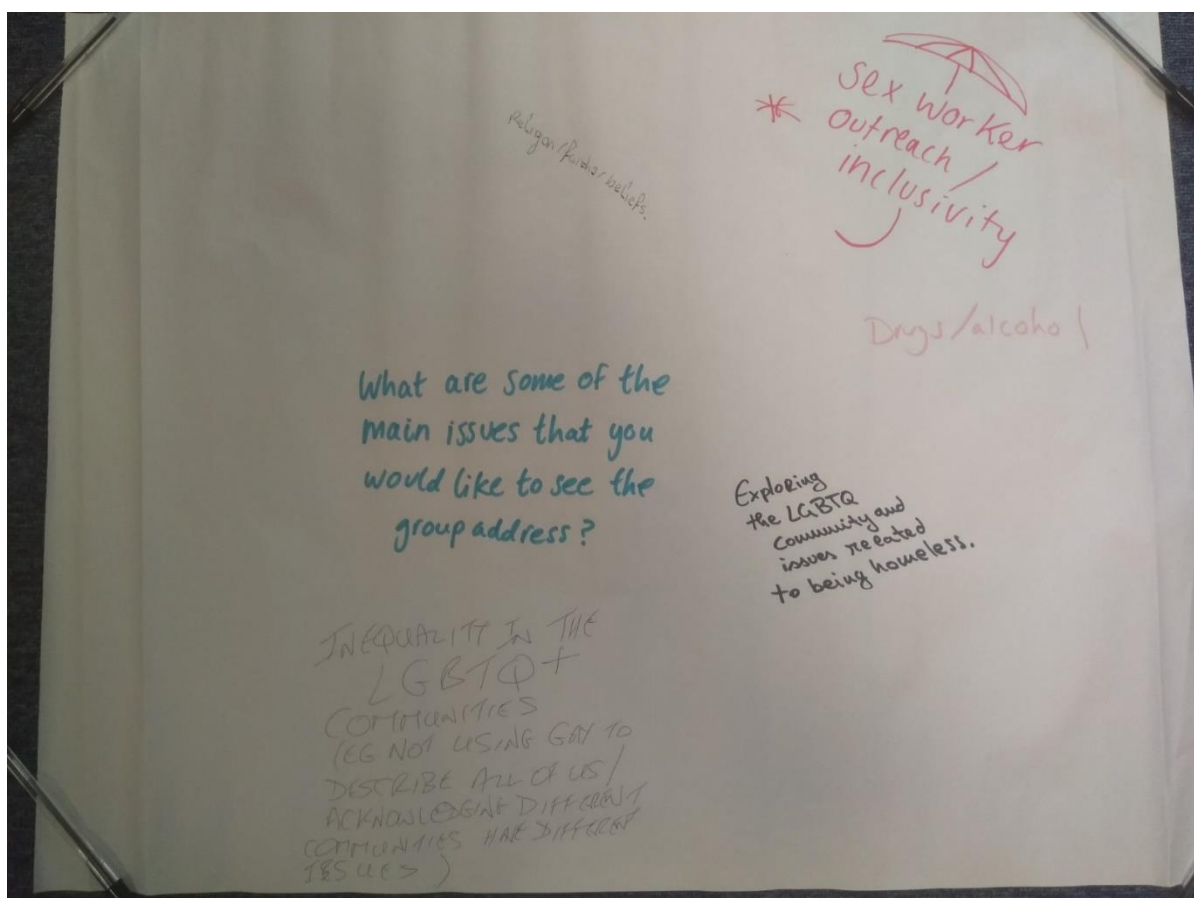 sex worker
outreach /
inclusivity
beliefs.
Drugs/alcohol
What are some of the
main issues that you
would like to see the
group address?
Exploring
the LGBTQ
community and
issues related
to being homeless.
INEQUALITY IN THE
LGBTQ+
COMMUNITIES
(EG NOT USING GAY TO
DESCRIBE ALL OF US/
ACKNOWLEDGING DIFFERENT
COMMUNITIES HAVE DIFFERENT
ISSUES)